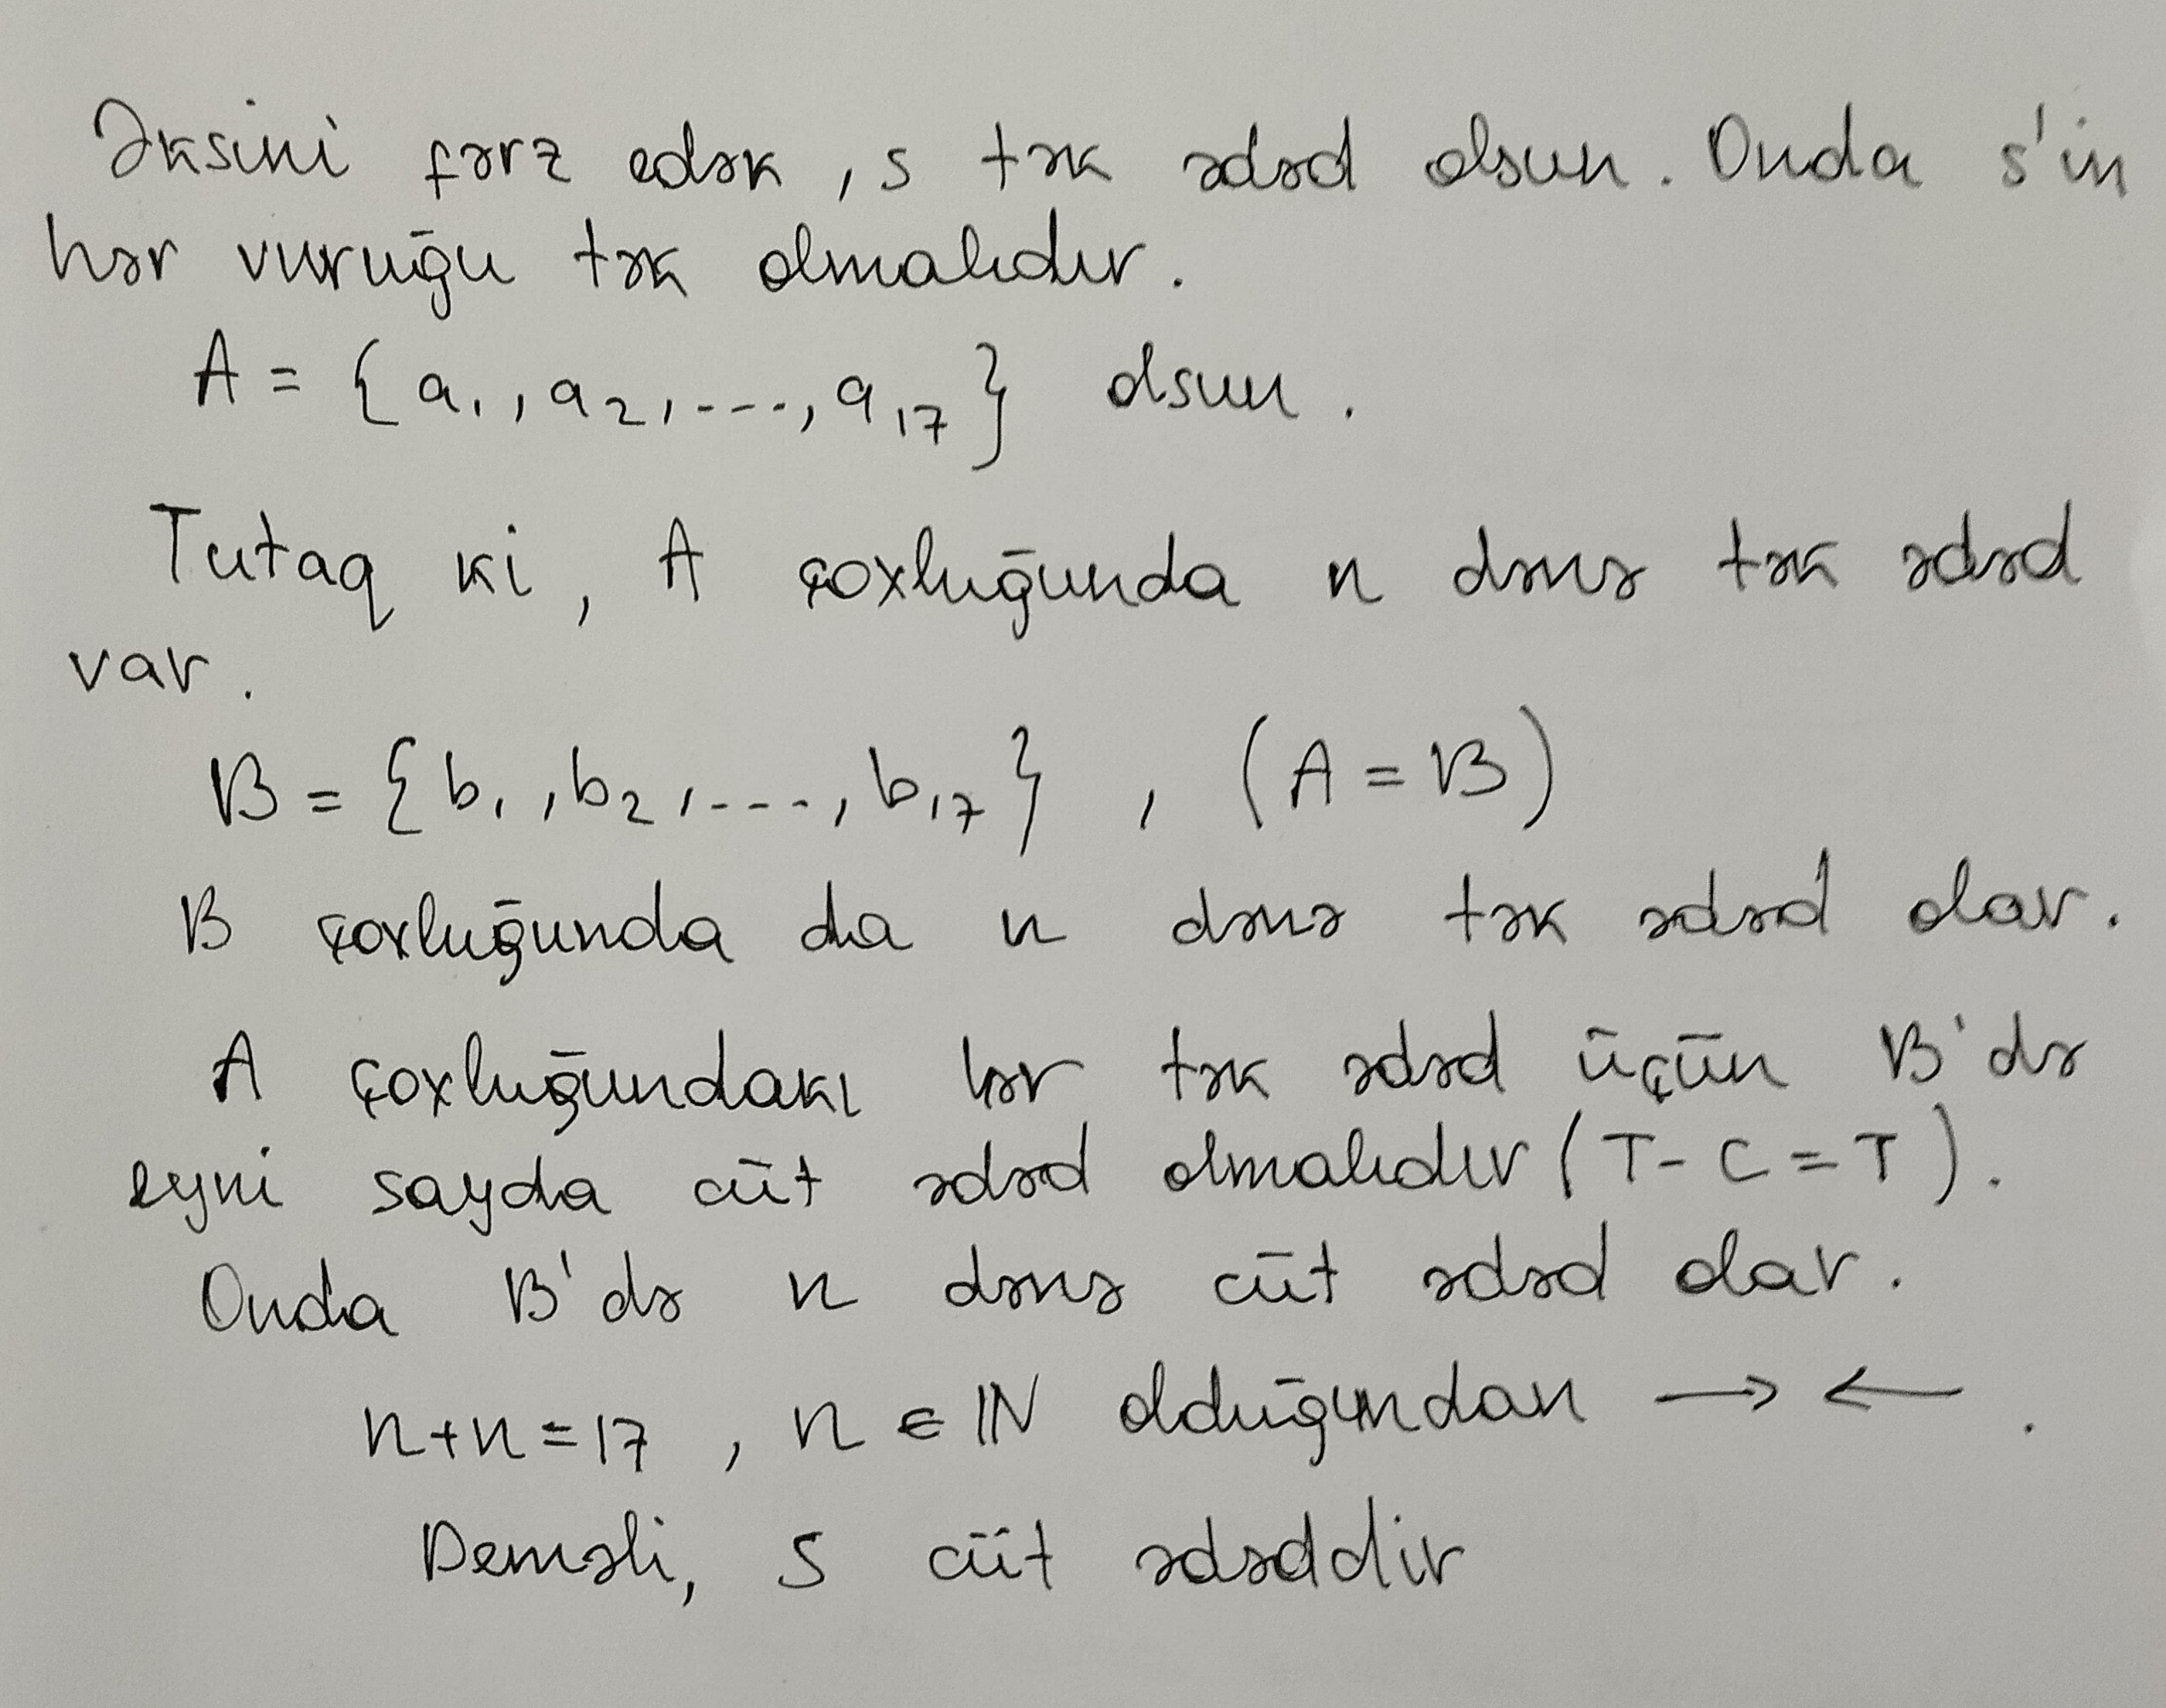 Əksini fərz edək, s tək ədəd olsun. Onda s'in
hər vuruğu tək olmalıdır.
A = {a₁, a₂, ---, a₁₇} olsun.
Tutaq ki, A çoxluğunda n dənə tək ədəd
var.
B = {b₁, b₂, ---, b₁₇}, (A = B)
B çoxluğunda da n dənə tək ədəd olar.
A çoxluğundakı hər tək ədəd üçün B'də
eyni sayda cüt ədəd olmalıdır (T - C = T).
Onda B'də n dənə cüt ədəd olar.
n+n=17, n ∈ ℕ olduğundan → ←.
Deməli, s cüt ədəddir